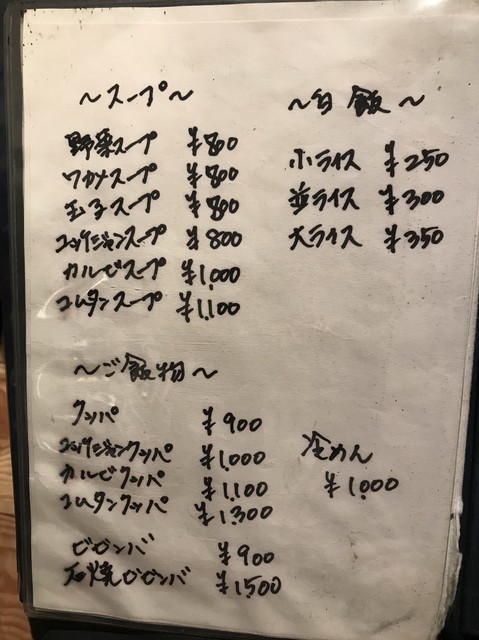 〜スープ〜
野菜スープ ¥800
ワカメスープ ¥800
玉子スープ ¥800
コムタンジャンスープ ¥800
カルビスープ ¥1,000
コムタンスープ ¥1,100
〜白飯〜
小ライス ¥250
並ライス ¥300
大ライス ¥350
〜ご飯物〜
クッパ ¥900
ユッケジャンクッパ ¥1,000
カルビクッパ ¥1,100
コムタンクッパ ¥1,300
ビビンバ ¥900
石焼ビビンバ ¥1,500
冷めん
¥1,000